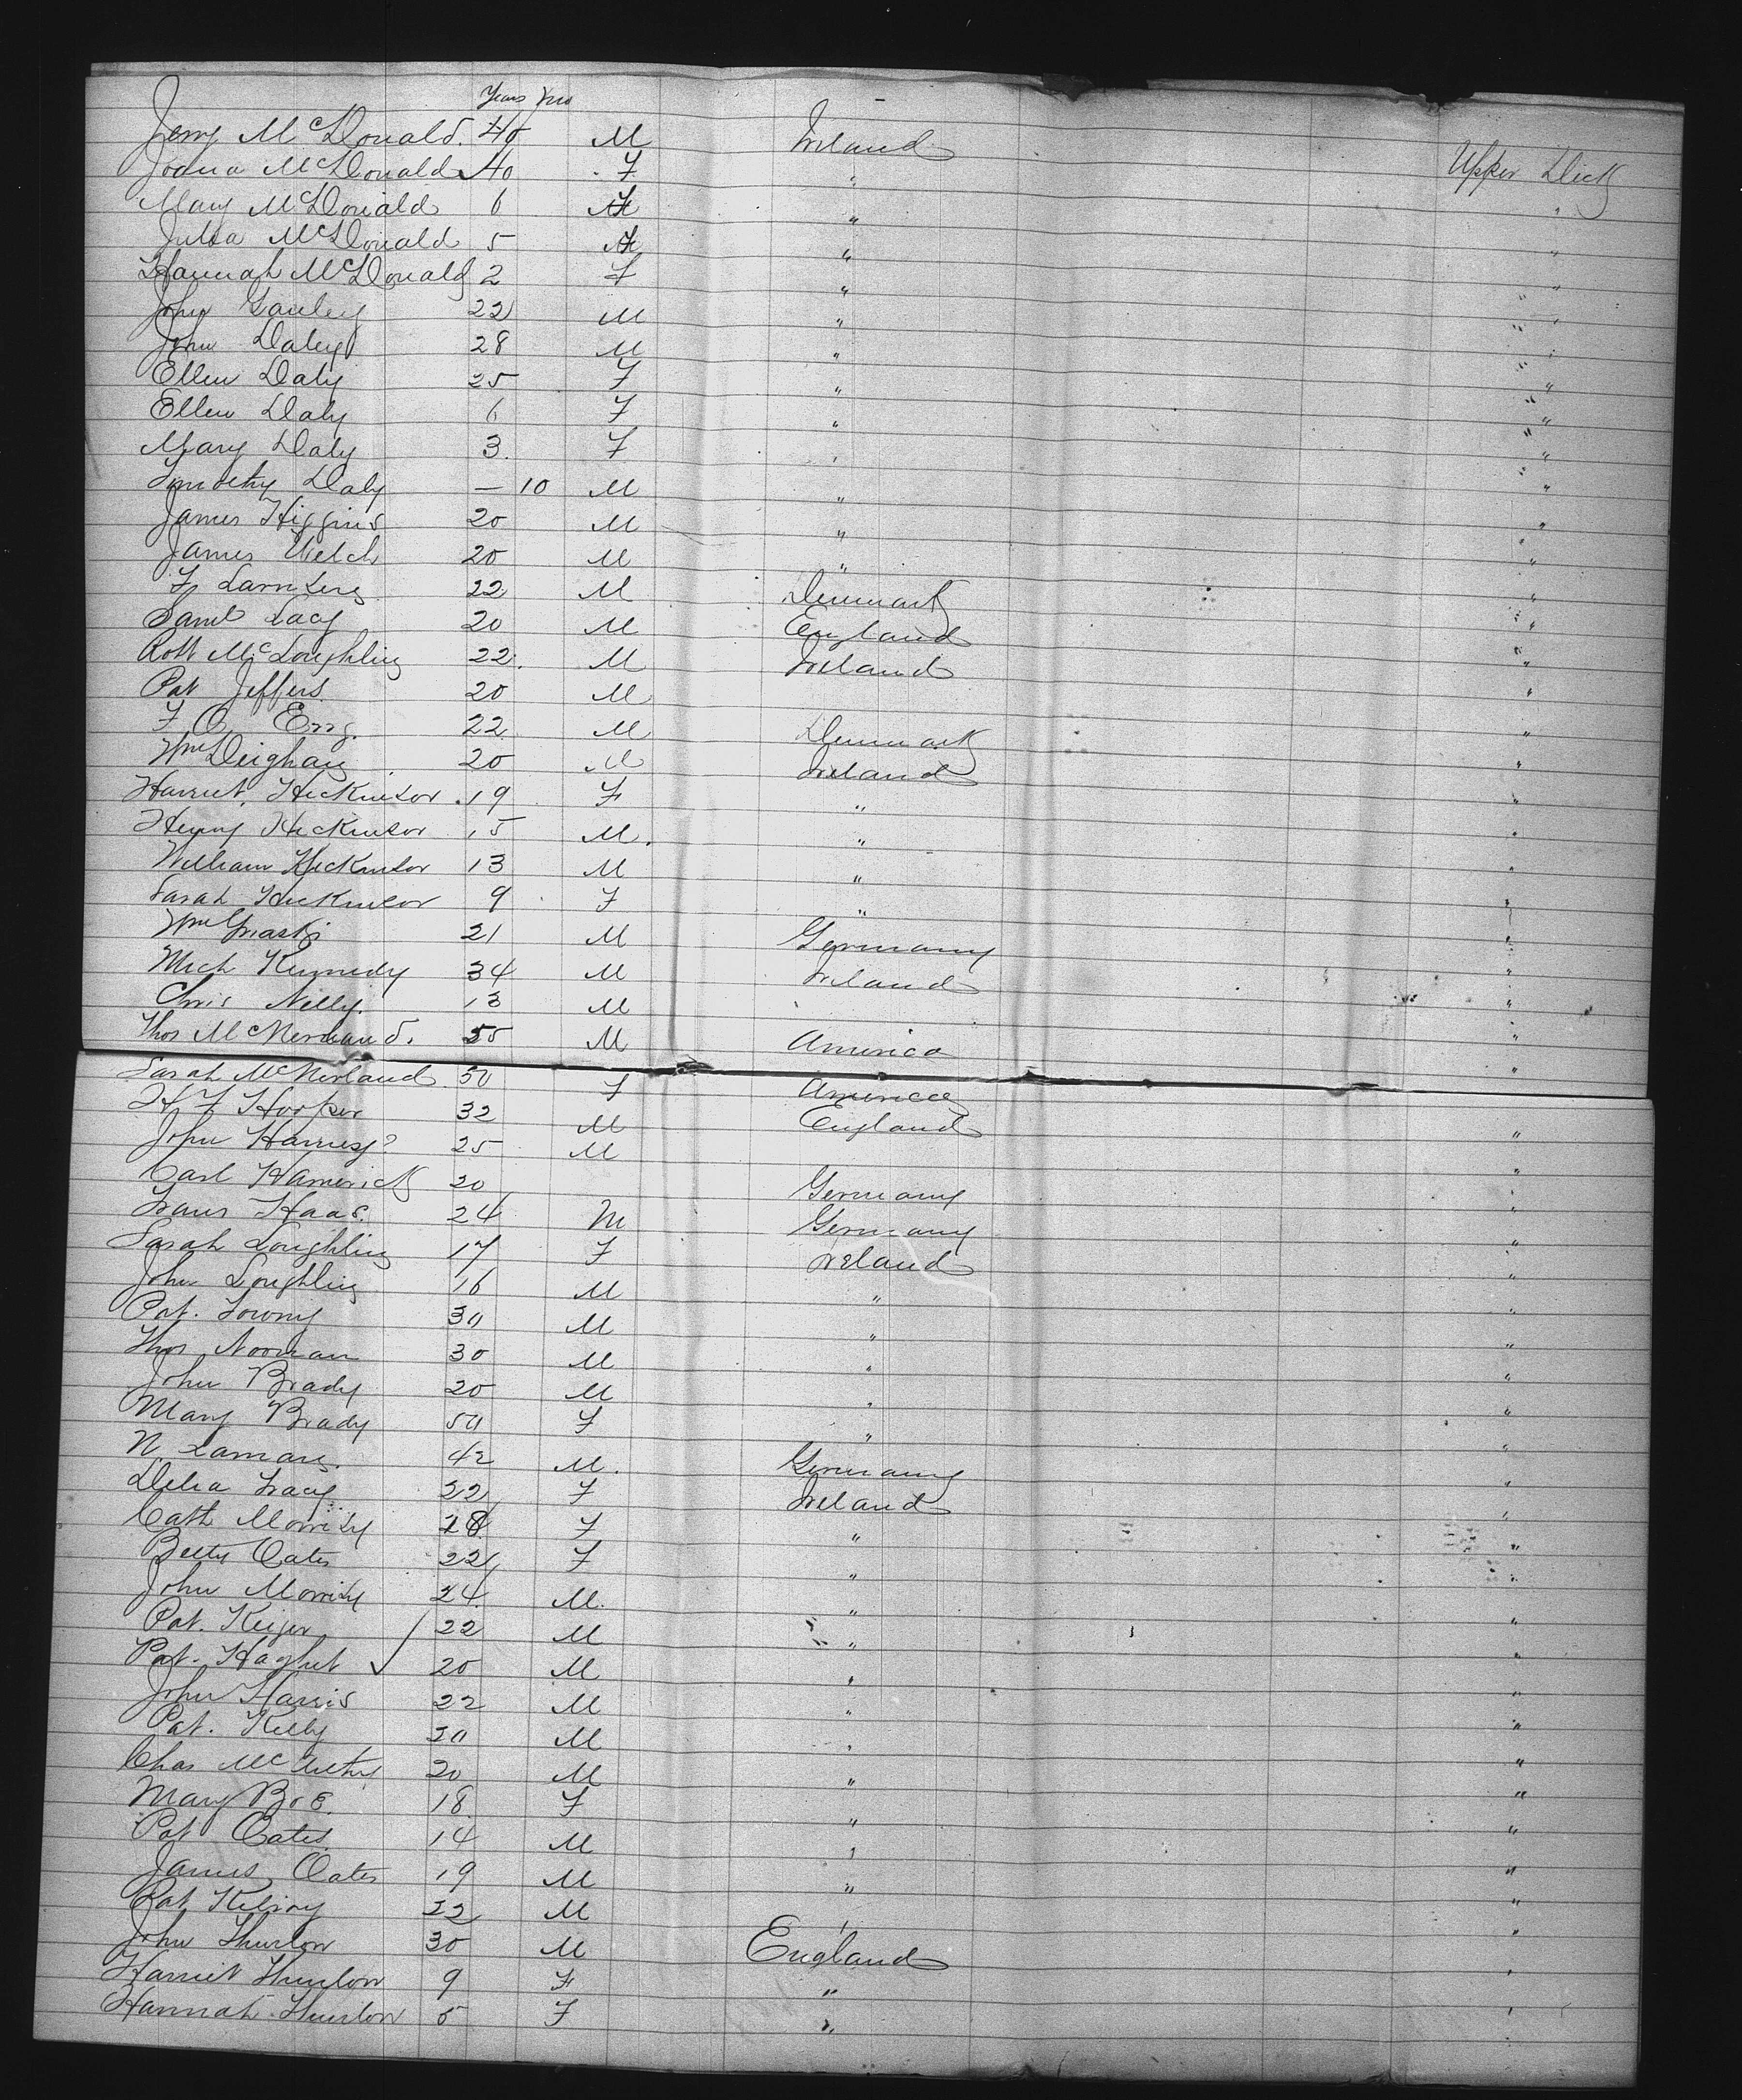 Years Mo
Jerry McDonald. 40 M Ireland
Joana McDonald 40 F " Upper Deck
Mary McDonald 6 F " "
Julia McDonald 5 F " "
Hannah McDonald 2 F " "
John 22 M " "
John Daley 28 M " "
Ellen Daly 25 F " "
Ellen Daly 6 F " "
Mary Daly 3 F " "
Timothy Daly — 10 M " "
James Higgins 20 M " "
James Welch 20 M " "
F 22 M Denmark "
Saml Lacy 20 M England "
Robt McLoughlin 22 M Ireland "
Pat Jeffers 20 M "
F O 22 M Denmark "
Wm Deighan 20 M Ireland "
Harriet 19 F " "
Henry 15 M. " "
William 13 M " "
Sarah 9 F " "
Wm 21 M Germany "
Mich Kennedy 34 M Ireland "
Chris Nelly. 13 M "
Thos 50 M America "
Sarah McNerland 50 F America
H F Hooper 32 M England "
John 25 M "
Carl Hamerick 20 Germany "
Frans Haas. 24 M Germany "
Sarah Loughlin 17 F Ireland "
John Loughlin 16 M " "
Pat. 30 M " "
Thos Noonan 30 M " "
John Brady 20 M " "
Mary Brady 50 F " "
N 42 M. Germany "
Delia Tracy 22 F Ireland "
Cath 28 F " "
Betty Oates 22 F " "
John 24 M. " "
Pat. 22 M " "
Pat. 20 M " "
John Harris 22 M " "
Pat. Kelly 20 M " "
Chas 20 M " "
Mary 18 F " "
Pat Oates 14 M " "
James Oates 19 M " "
Pat Kilroy 22 M " "
John Thurlow 30 M England "
Harriet Thurlow 9 F " "
Hannah Thurlow 5 F " "